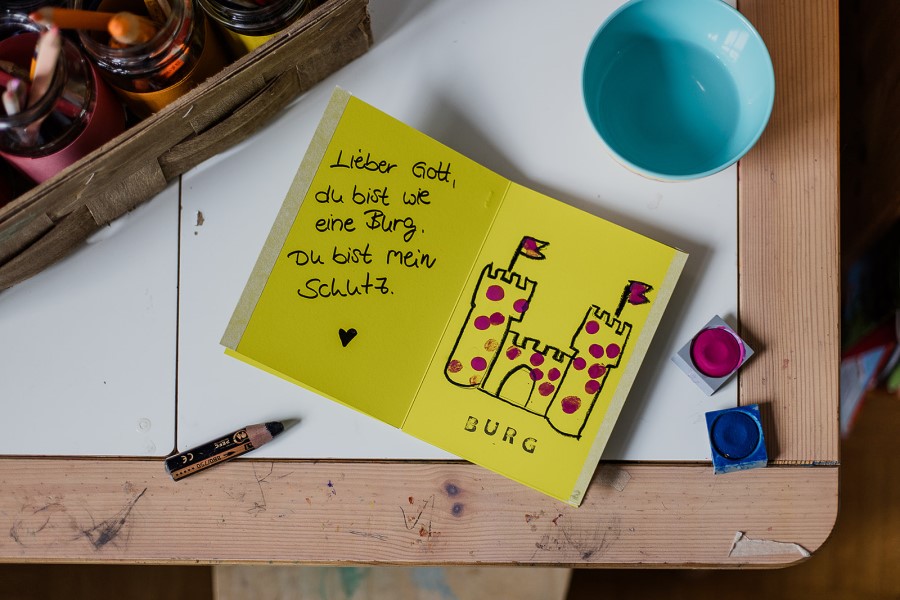 Lieber Gott,
du bist wie
eine Burg.
Du bist mein
Schutz.
BURG
2